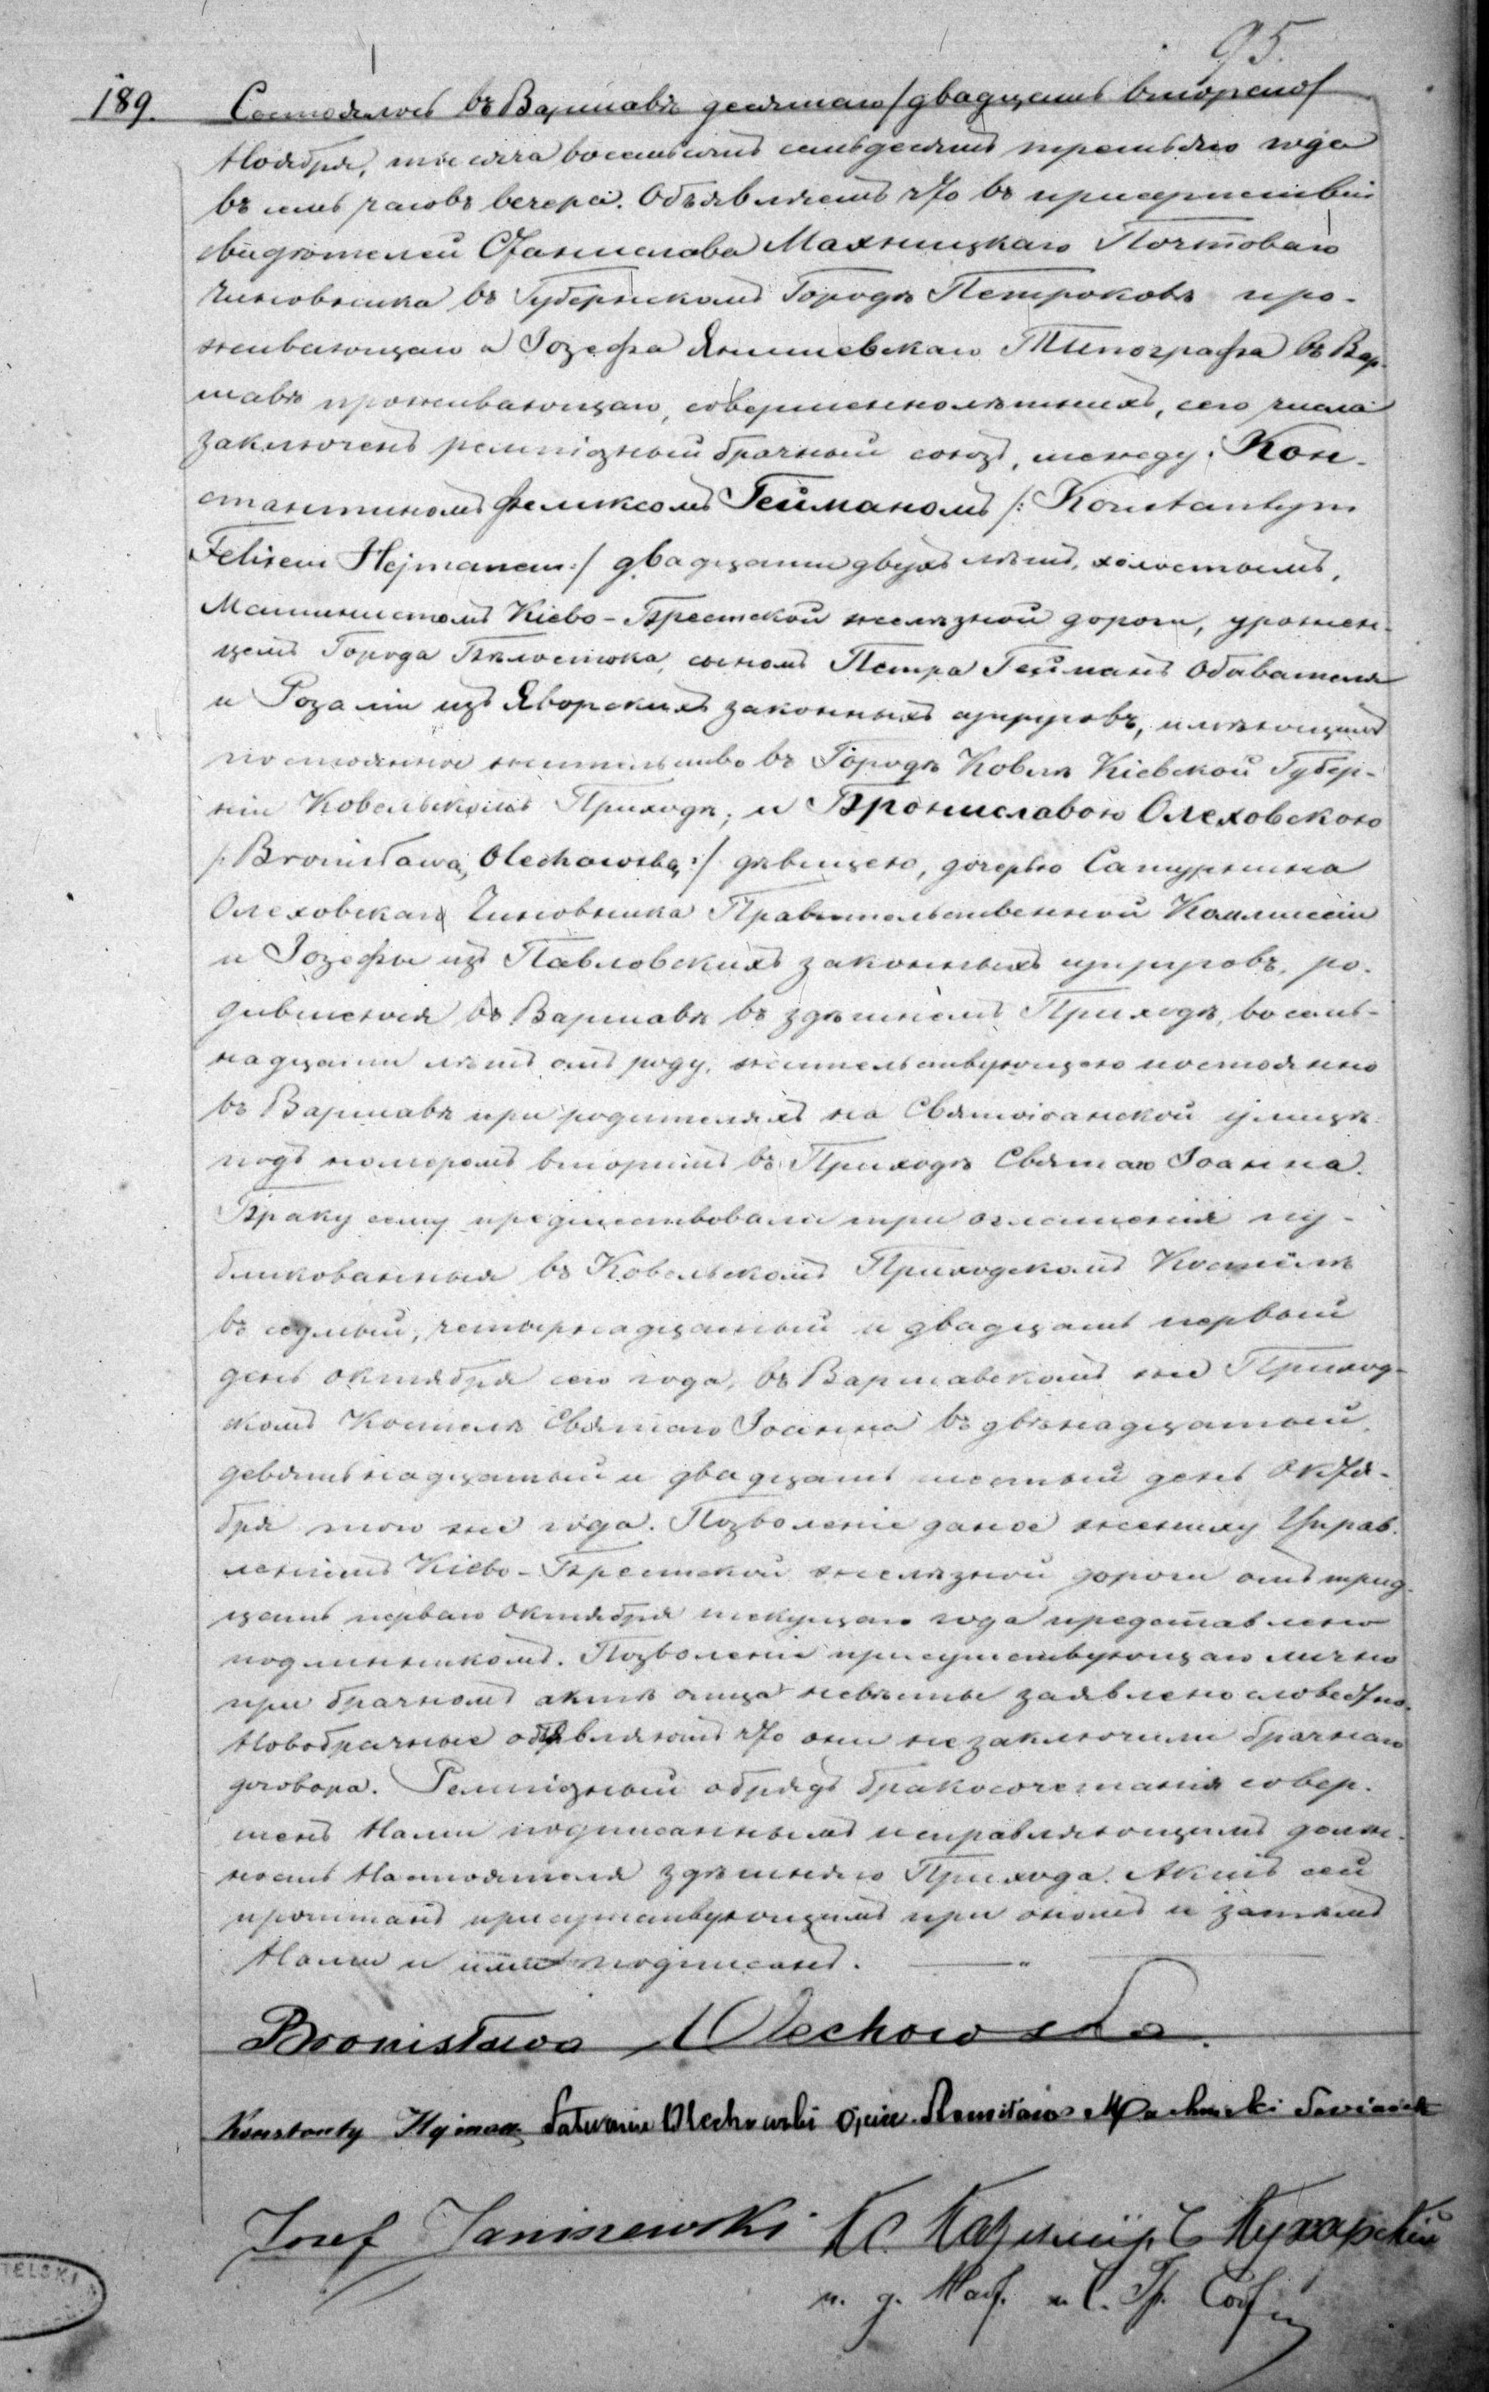 95.
189. Состоялось въ Варшавѣ десятаго /двадцать втораго/
Ноября, тысяча восемьсотъ семьдесятъ третьяго года
въ семь часовъ вечера. Объявляемъ что въ присутствіи
свидѣтелей Станислава Махницкаго Почтоваго
Чиновника въ Губернскомъ Городѣ Петроковѣ про-
живающаго и Іозефа Янишевскаго Типографа въ Вар-
шавѣ проживающаго, совершеннолѣтнихъ, сего числа
заключенъ религіозный брачный союзъ, между: Кон-
стантиномъ Феликсомъ Гейманомъ /: Konstantym
Felixem Hejmanem :/ двадцати двухъ лѣтъ, холостымъ,
Машинистомъ Кіево-Брестской желѣзной дороги, урожен-
цемъ Города Бѣлостока, сыномъ Петра Гейманъ Обывателя
и Розаліи изъ Яворскихъ законныхъ супруговъ, имѣющимъ
постоянное жительство въ Городѣ Ковлѣ Кіевской Губер-
ніи Ковельскомъ Приходѣ; и Брониславою Олеховскою
/: Bronisławą Olechowską :/ дѣвицею, дочерью Сатурнина
Олеховскаго Чиновника Правительственной Коммиссіи
и Іозефы изъ Павловскихъ законныхъ супруговъ, ро-
дившеюся въ Варшавѣ въ здѣшнемъ Приходѣ, восем-
надцати лѣтъ отъ роду, жительствующею постоянно
въ Варшавѣ при родителяхъ на Святоіоанской улицѣ
подъ номеромъ вторымъ въ Приходѣ Святаго Іоанна.
Браку сему предшествовали три оглашенія пу-
бликованныя въ Ковельскомъ Приходскомъ Костёлѣ
въ седмый, четырнадцатый и двадцать первый
день октября сего года, въ Варшавскомъ же Приход-
скомъ Костелѣ Святаго Іоанна въ двѣнадцатый,
девятьнадцатый и двадцать шестый день Октя-
бря того же года. Позволеніе даное жениху Управ-
леніемъ Кіево-Брестской желѣзной дороги отъ трид-
цать перваго Октября текущаго года представлено
подлинникомъ. Позволеніе присутствующаго лично
при брачномъ актѣ отца невѣсты заявлено словестно.
Новобрачные объявляютъ что они не заключили брачнаго
договора. Религіозный обрядъ бракосочетанія совер-
шенъ Нами подписаннымъ исправляющимъ долж-
ность Настоятеля здѣшняго Прихода. Актъ сей
прочитанъ присутствующимъ при ономъ и затѣмъ
Нами и ими подписанъ.
Bronisława Olechowska.
Konstanty Hejman Saturnin Olechowski Ojciec Stanisław Machnicki Swiadek
Josef Janiszewski Кс. Казиміръ Кухарскій
и. д. Наст.